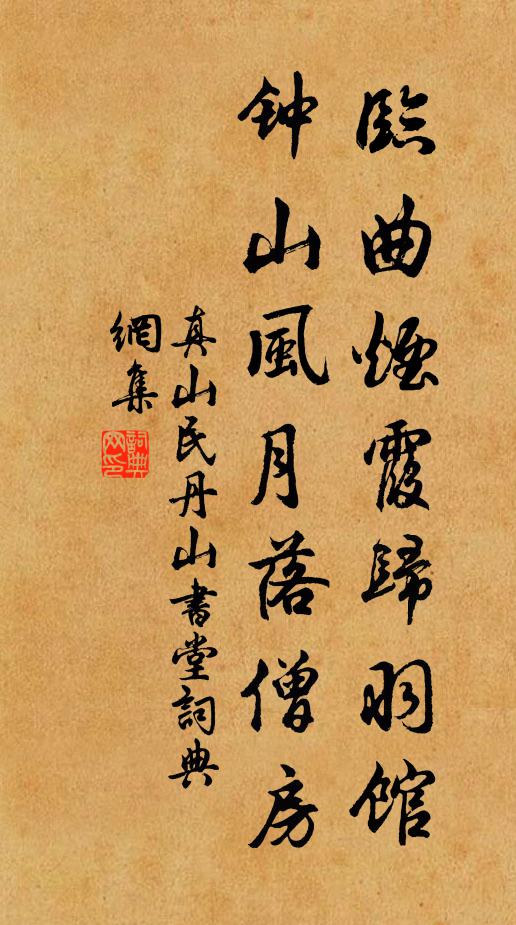 臨曲煙霞歸羽館
钟山風月落僧房
真山民丹山書堂詞典
網集
詞典
网印